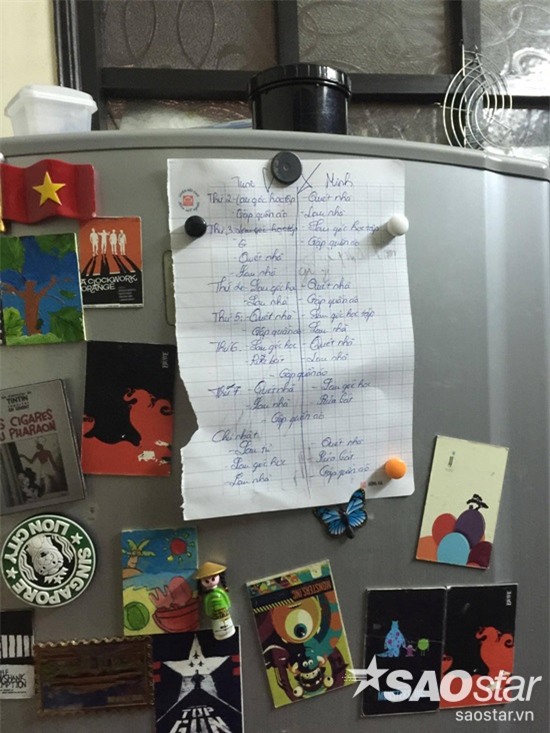 June Minh
Thứ 2 - Lau góc học tập - Quét nhà
- Gấp quần áo - Lau nhà
Thứ 3 - Lau góc học tập
- Gấp quần áo
- Quét nhà
- Lau nhà
Thứ 4 - Lau góc học - Quét nhà
- Lau nhà - Gấp quần áo
Thứ 5 - Quét nhà - Lau góc học tập
Gấp quần áo - Lau nhà
Thứ 6 - Lau góc học - Quét nhà
- Rửa bát - Lau nhà
- Gấp quần áo
Thứ 7 - Quét nhà - Lau góc học
- Lau nhà - Rửa bát
- Gấp quần áo
Chủ nhật
- Lau tủ - Quét nhà
- Lau góc học - Rửa bát
- Lau nhà - Gấp quần áo
A CLOCKWORK
ORANGE
TINTIN
LES CIGARES
DU PHARAON
SINGAPORE
LION CITY
REDEMPTION
TOP
GUN
MONSTERS, INC.
SAOstar
saostar.vn